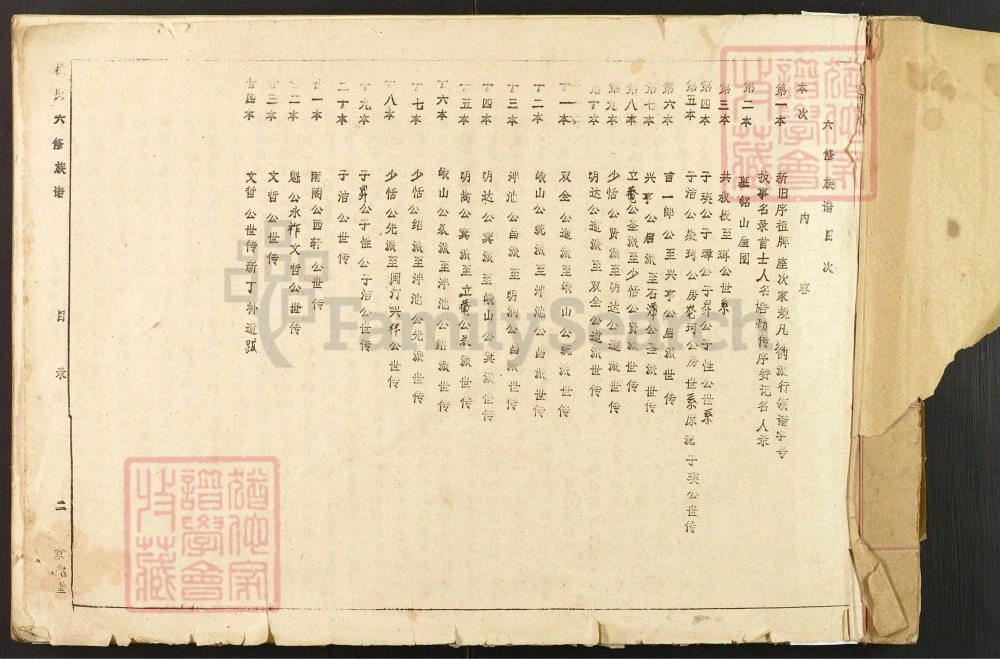 六修族谱目次
本次 内容
第一本 新旧序祖牌座次家规凡例派行领谱字号
执事名录首士人名诰勅传序赞记名人录
第二本 山屋图
第三本 至公世系
第四本 子瑛公子璋公子昇公子性公世系
第五本 子洁公房公房世系原流子瑛公世传
第六本 首一郎公至兴亨公启派世传
第七本 兴亨公启派至石潭公圣派世传
第八本 立菴公圣派至少恬公贤派世传
第九本 少恬公贤派至明达公道派世传
第十本 明达公道派至双全公道派世传
十一本 双全公道派至岷山公统派世传
十二本 岷山公统派至泮池公昌派世传
十三本 泮池公昌派至明公昌派世传
十四本 明达公冀派至岷山公冀派世传
十五本 明公冀派至立菴公裂派世传
十六本 岷山公派至泮池公绍派世传
十七本 少恬公绍派至泮池公先派世传
十八本 少恬公先派至闽汀兴祥公世传
十九本 子昇公子性公子洁公世传
二十本 子洁公世传
廿一本 公西轩公世传
廿二本 魁公永祚文哲公世传
廿三本 文哲公世传
廿四本 文哲公世传新丁补遗跋
氏六修族谱 目录 二 京兆堂
FamilySearch
猶他家譜學會收藏
猶他家譜學會收藏